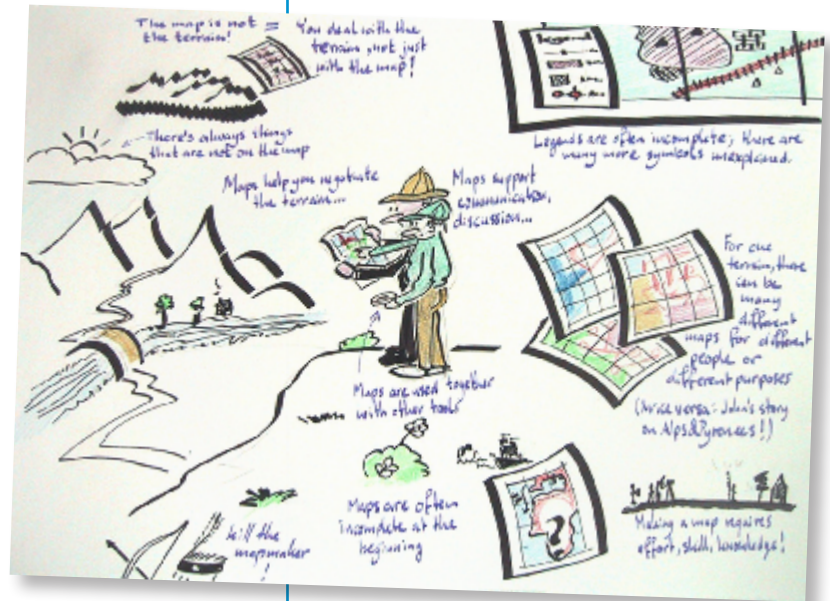 The map is not
the terrain!
=
You deal with the
terrain, not just
with the map!
There's always things
that are not on the map
Legends are often incomplete; there are
many more symbols unexplained.
Maps help you negotiate
the terrain...
Maps support
communication,
discussion...
For one
terrain, there
can be
many
different
maps for different
people or
different purposes
(vice versa: John's story
on Alps&Pyrenees!)
Maps are used together
with other tools
Maps are often
incomplete at the
beginning
?
Kill the
mapmaker
!
Making a map requires
effort, skill, knowledge!